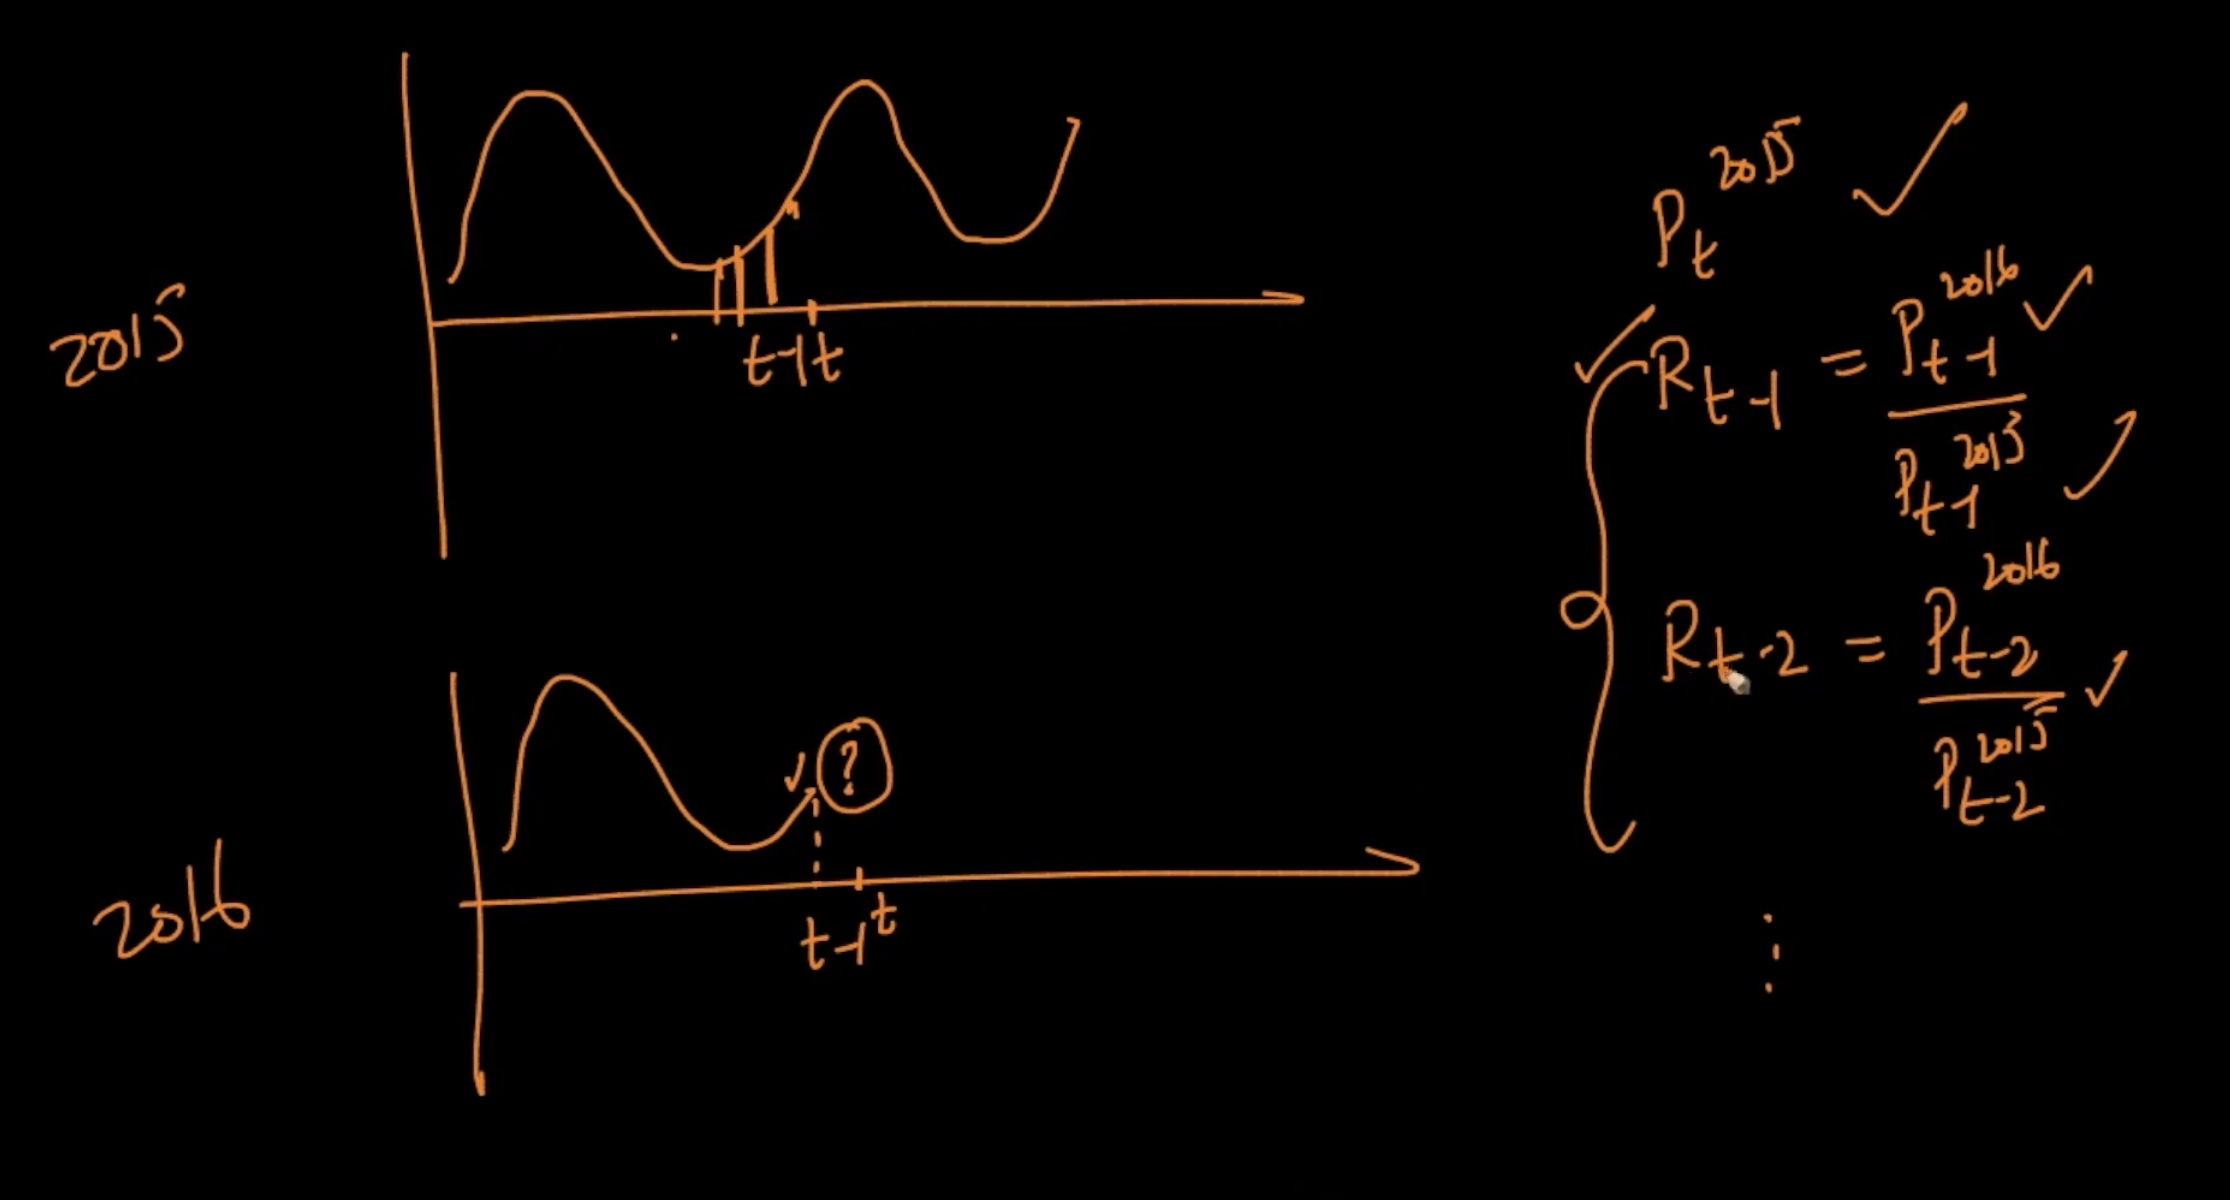 2015
t-1 t
2016
?
t-1 t
P_t^2015 ✓
✓ R_t-1 = P_t-1^2016 ✓
P_t-1^2015 ✓
R_t-2 = P_t-2^2016
P_t-2^2015 ✓